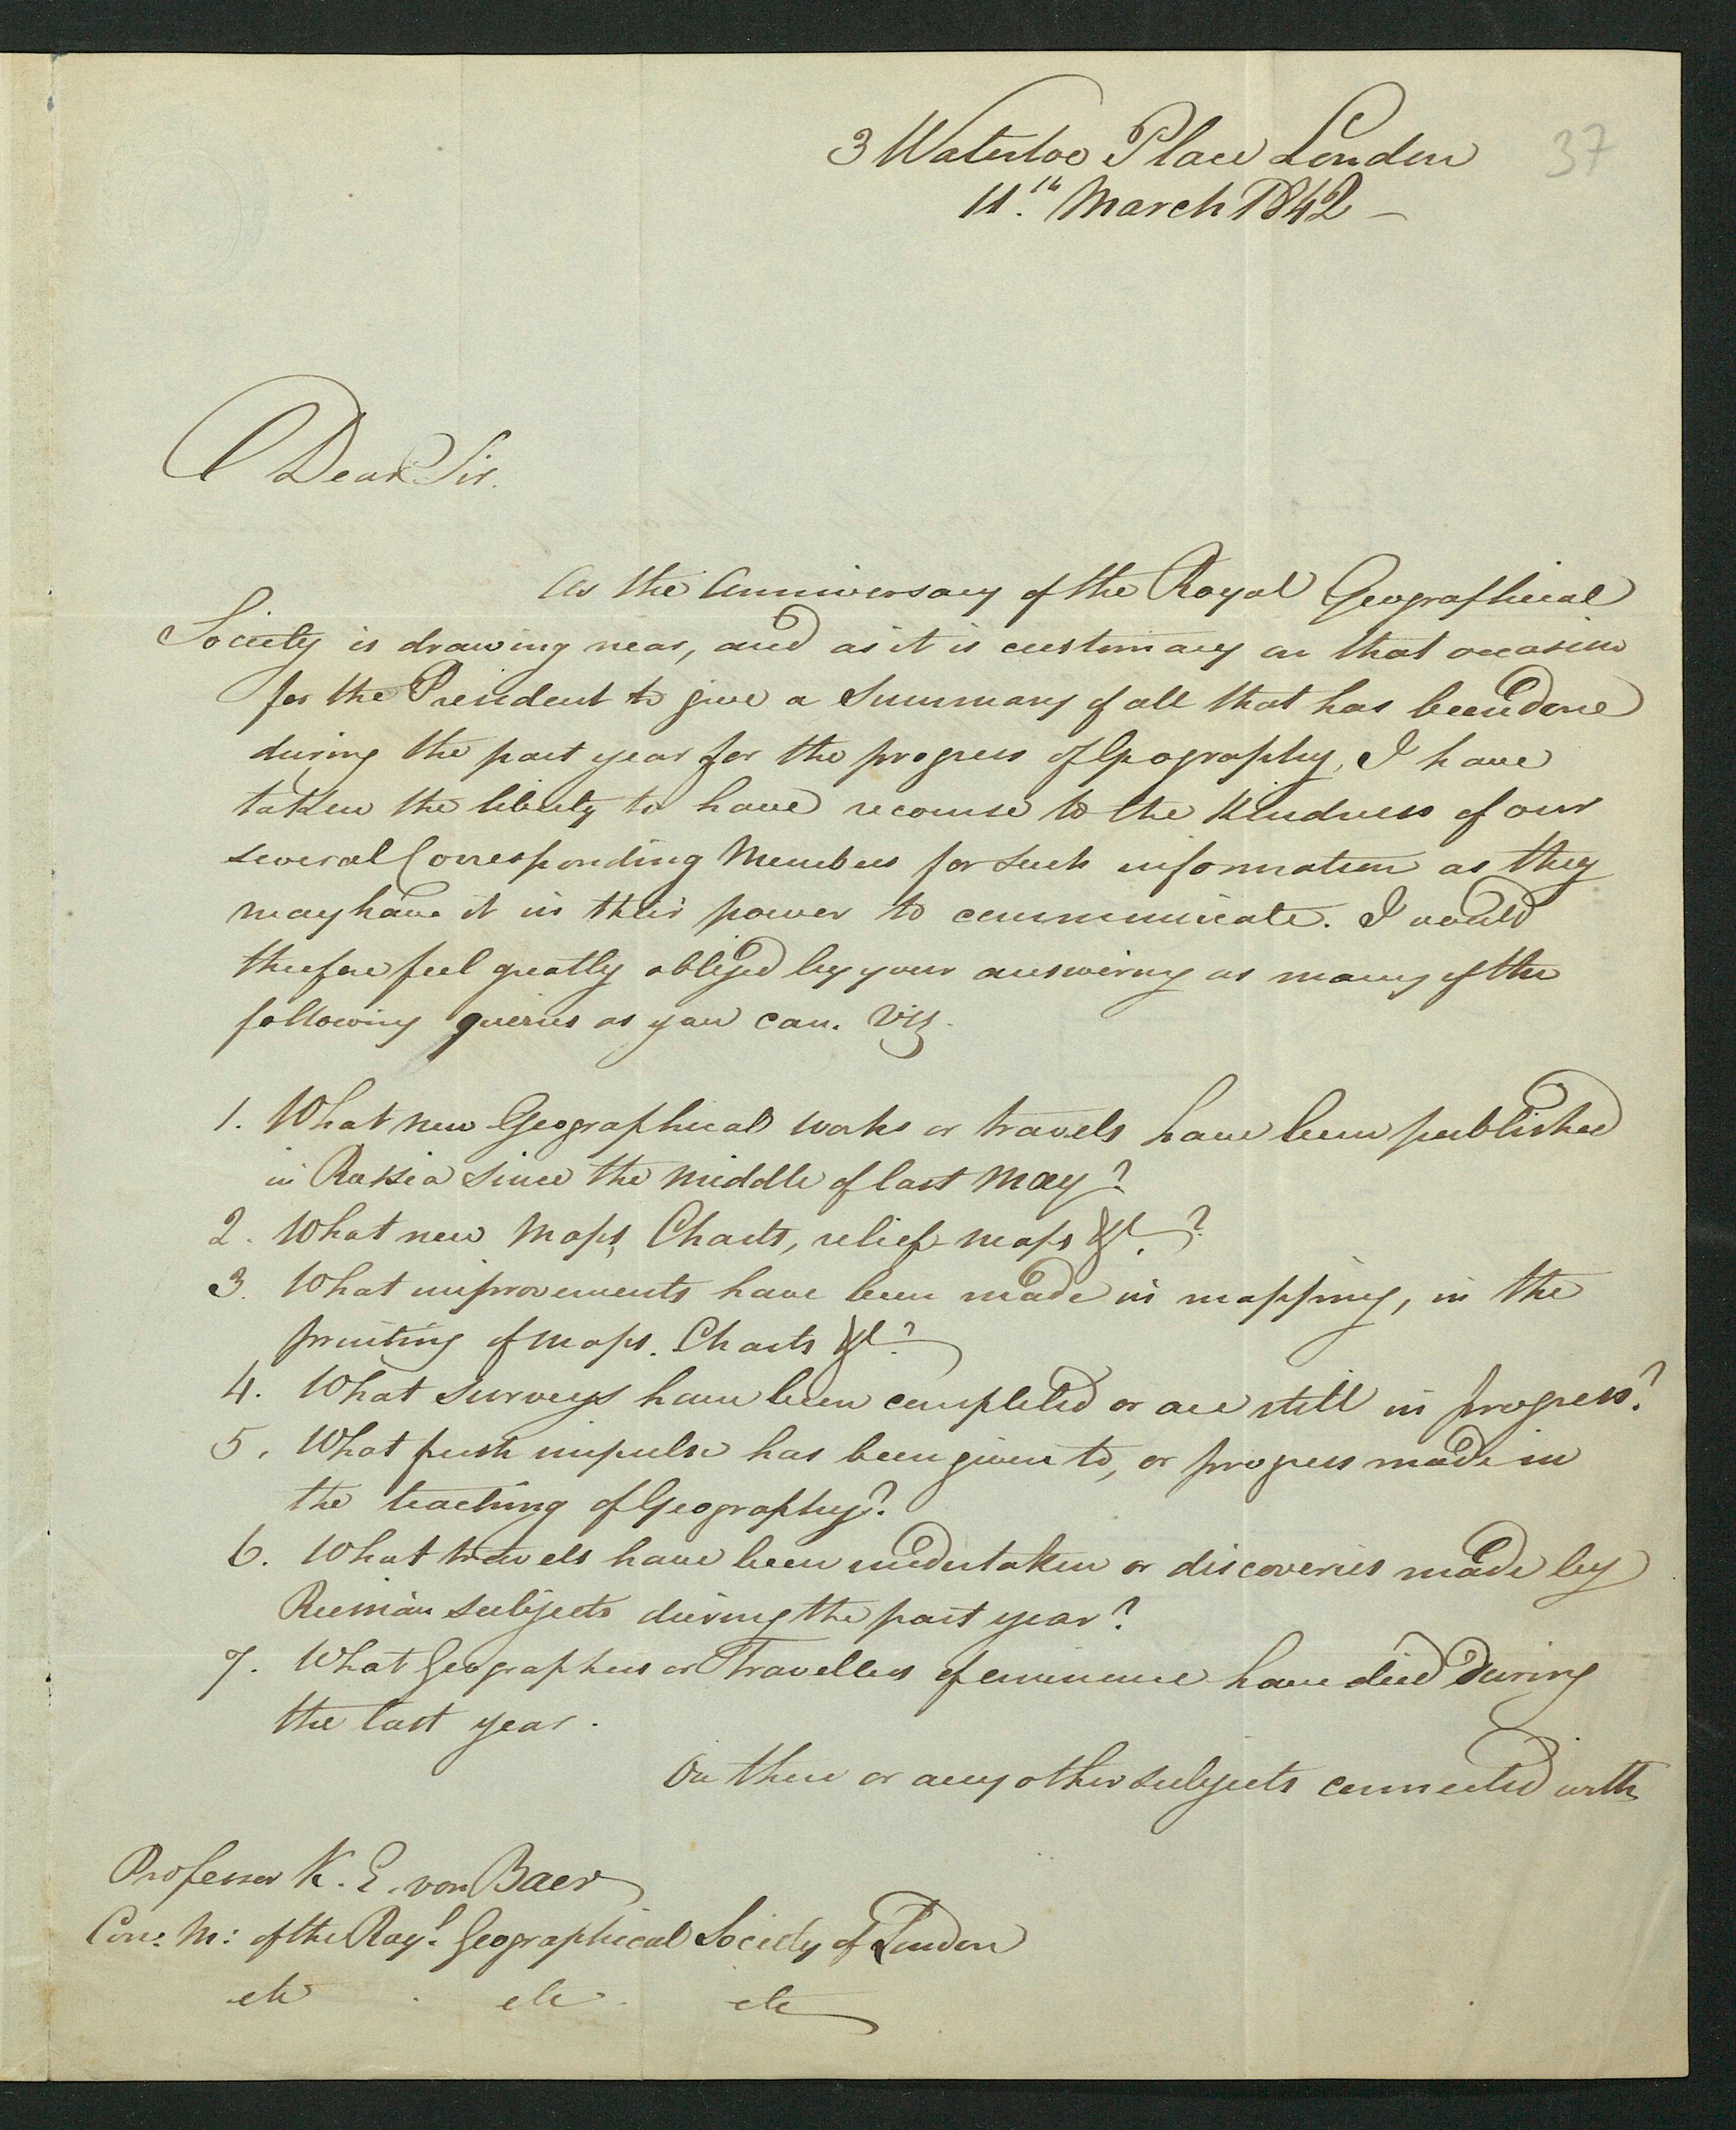 3 Waterloo Place London
37
11.th March 1842 –
Dear Sir.
As the Anniversary of the Royal Geographical
Society is drawing near, and as it is customary on that occasion
for the President to give a Summary of all that has been done
during the past year for the progress of Geography, I have
taken the liberty to have recourse to the Kindness of our
several Corresponding Members for such information as they
may have it in their power to communicate. I would
therefore feel greatly obliged by your answering as many of the
following queries as you can. Viz.
1. What new Geographical works or travels have been published
in Russia since the middle of last May?
2. What new Maps, Charts, relief maps &c. ?
3. What improvements have been made in mapping, in the
printing of maps. Charts &c?
4. What surveys have been completed or are still in progress?
5. What fresh impulse has been given to, or progress made in
the teaching of Geography?
6. What travels have been undertaken or discoveries made by
Russian subjects during the past year?
7. What Geographers or Travellers of eminence have died during
the last year.
On these or any other subjects connected with
Professor K. E. von Baer
Corr. M: of the Roy.l Geographical Society of London
etc . etc . etc